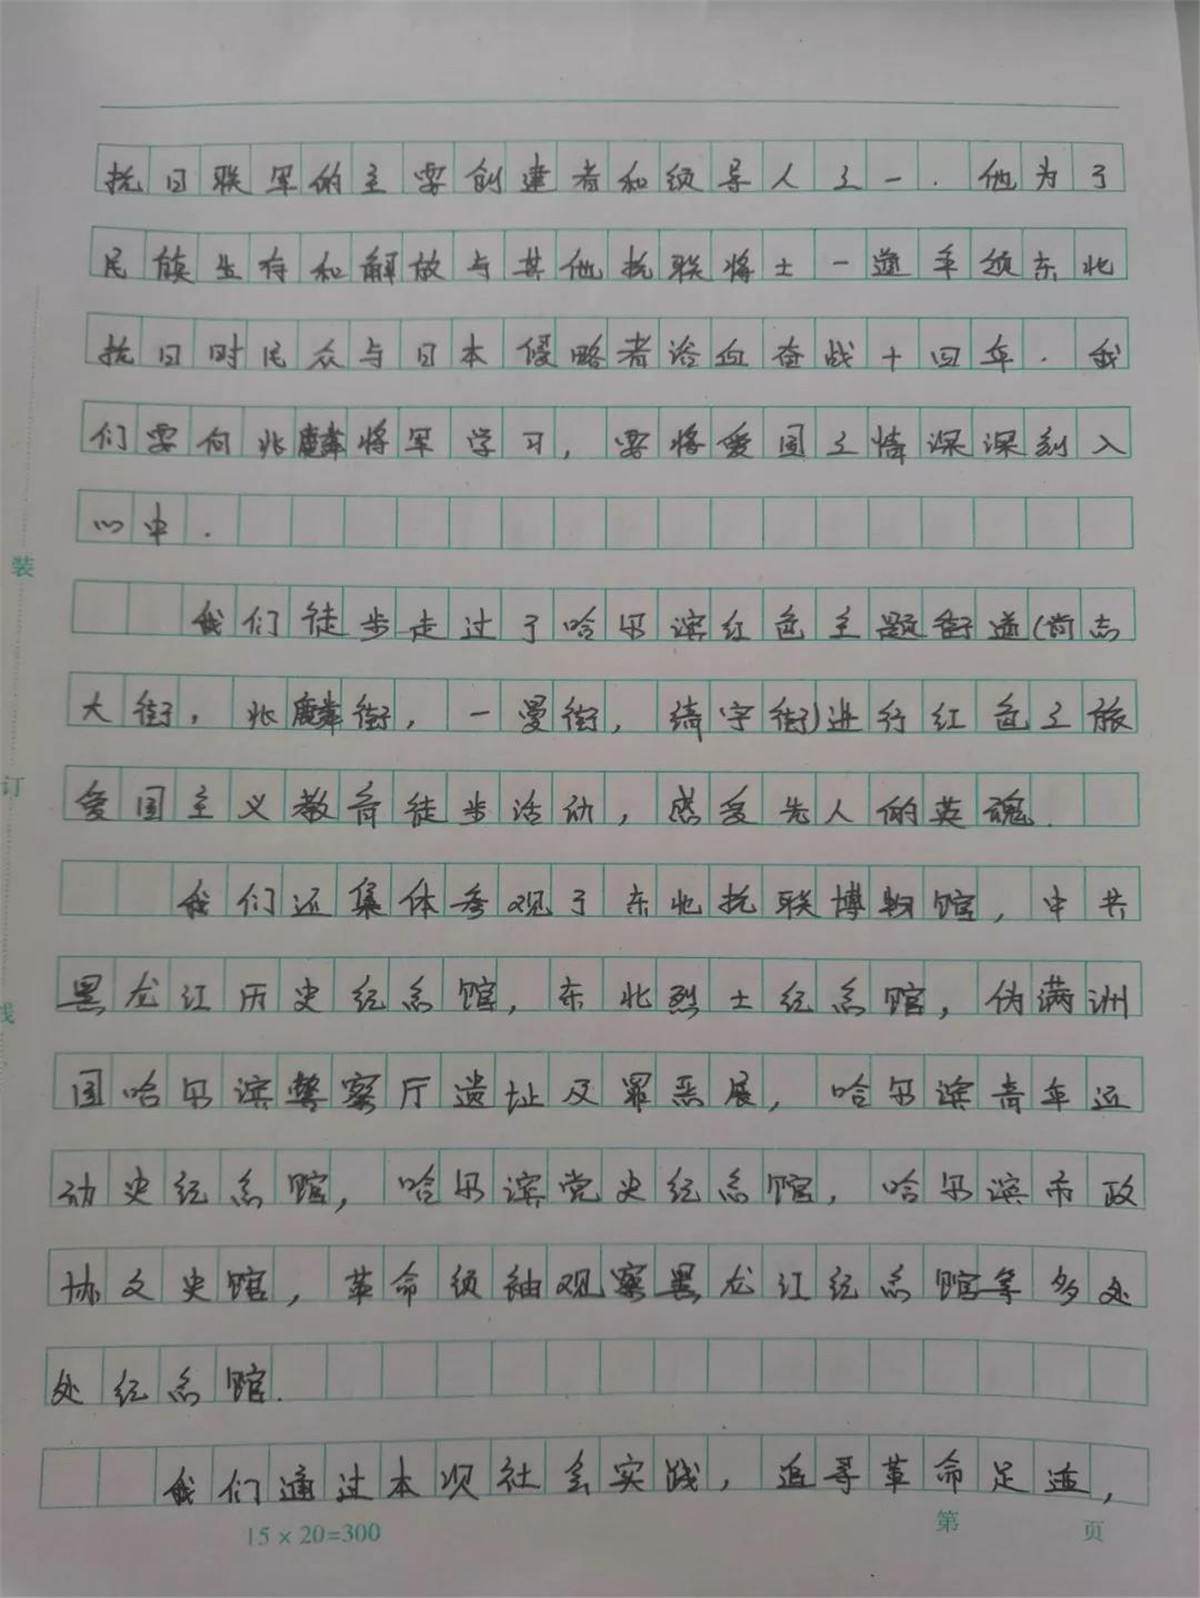 抗日联军的主要创建者和领导人之一.他为了
民族生存和解放与其他抗联将士一道率领东北
抗日时民众与日本侵略者浴血奋战十四年.我
们要向兆麟将军学习,要将爱国之情深深刻入
心中.
我们徒步走过了哈尔滨红色主题街道(尚志
大街,兆麟街,一曼街,靖宇街)进行红色之旅
爱国主义教育徒步活动,感受先人的英魂.
我们还集体参观了东北抗联博物馆,中共
黑龙江历史纪念馆,东北烈士纪念馆,伪满洲
国哈尔滨警察厅遗址及罪恶展,哈尔滨青年运
动史纪念馆,哈尔滨党史纪念馆,哈尔滨市政
协文史馆,革命领袖观察黑龙江纪念馆等多处
处纪念馆.
我们通过本次社会实践,追寻革命足迹,
15×20=300
第 页
装
订
线